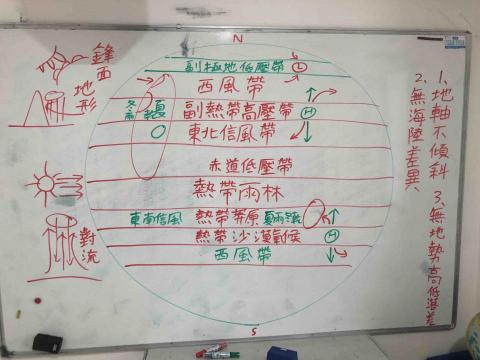 N
副極地低壓帶 L
西風帶
副熱帶高壓帶 H
東北信風帶
赤道低壓帶
熱帶雨林
東南信風 熱帶莽原
熱帶沙漠氣候 H
西風帶
S
鋒面
地形
對流
1、地軸不傾斜
2、無海陸差異
3、無地勢高低落差